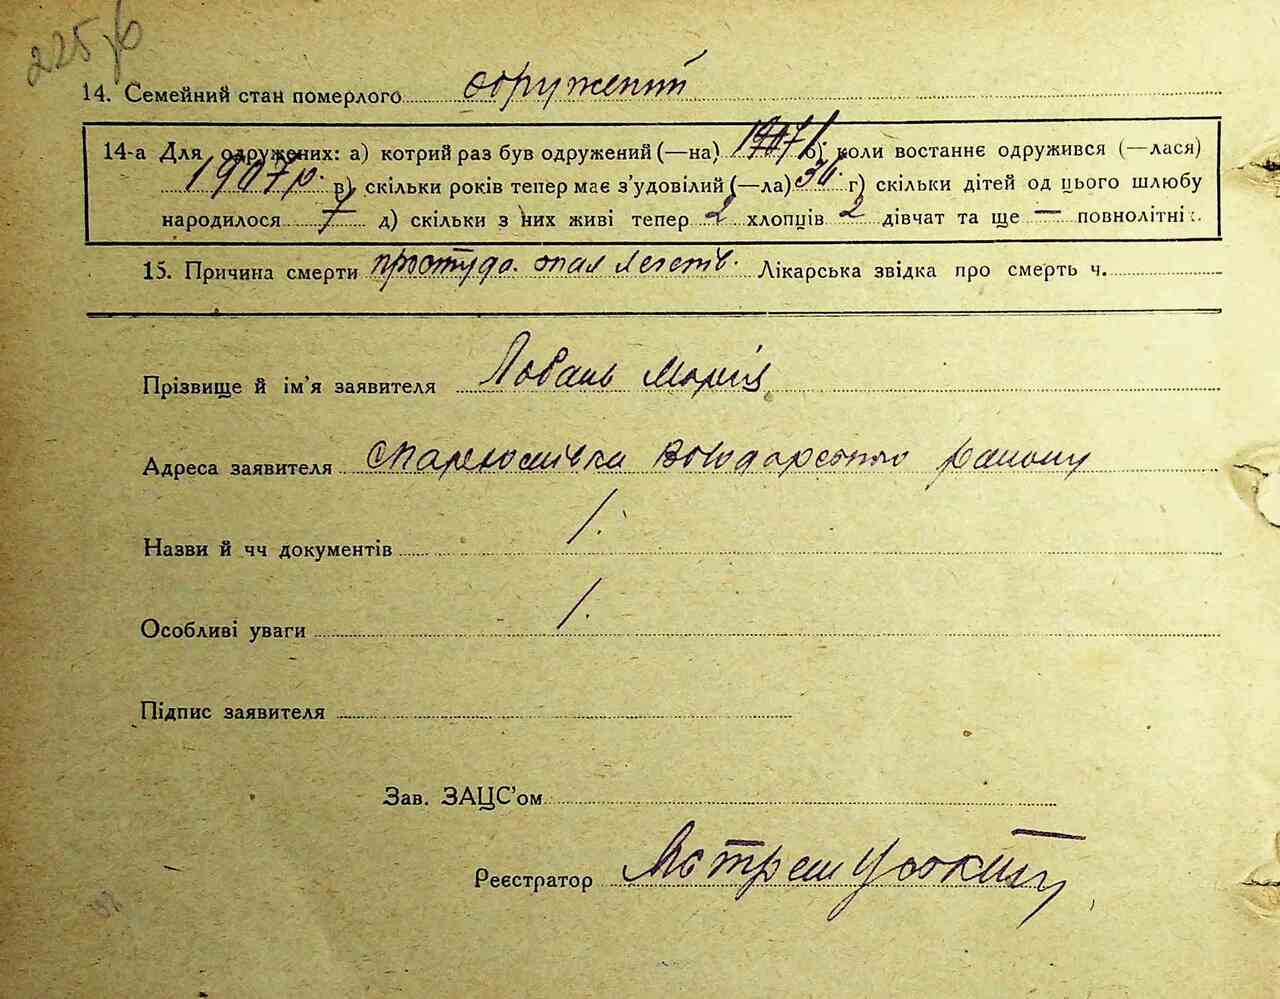 225
14. Семейний стан померлого одружений
14-а Для одружених: а) котрий раз був одружений (—на) б) коли востаннє одружився (—лася)
1907 р. в) скільки років тепер має з’удовілий (—ла) 36. г) скільки дітей од цього шлюбу
народилося 7 д) скільки з них живі тепер 2 хлопців 2 дівчат та ще — повнолітні
15. Причина смерти простуда. Лікарська звідка про смерть ч.
Прізвище й ім’я заявителя Лобань Марія
Адреса заявителя Володарського району
Назви й чч документів /.
Особливі уваги /.
Підпис заявителя
Зав. ЗАЦС’ом
Реєстратор